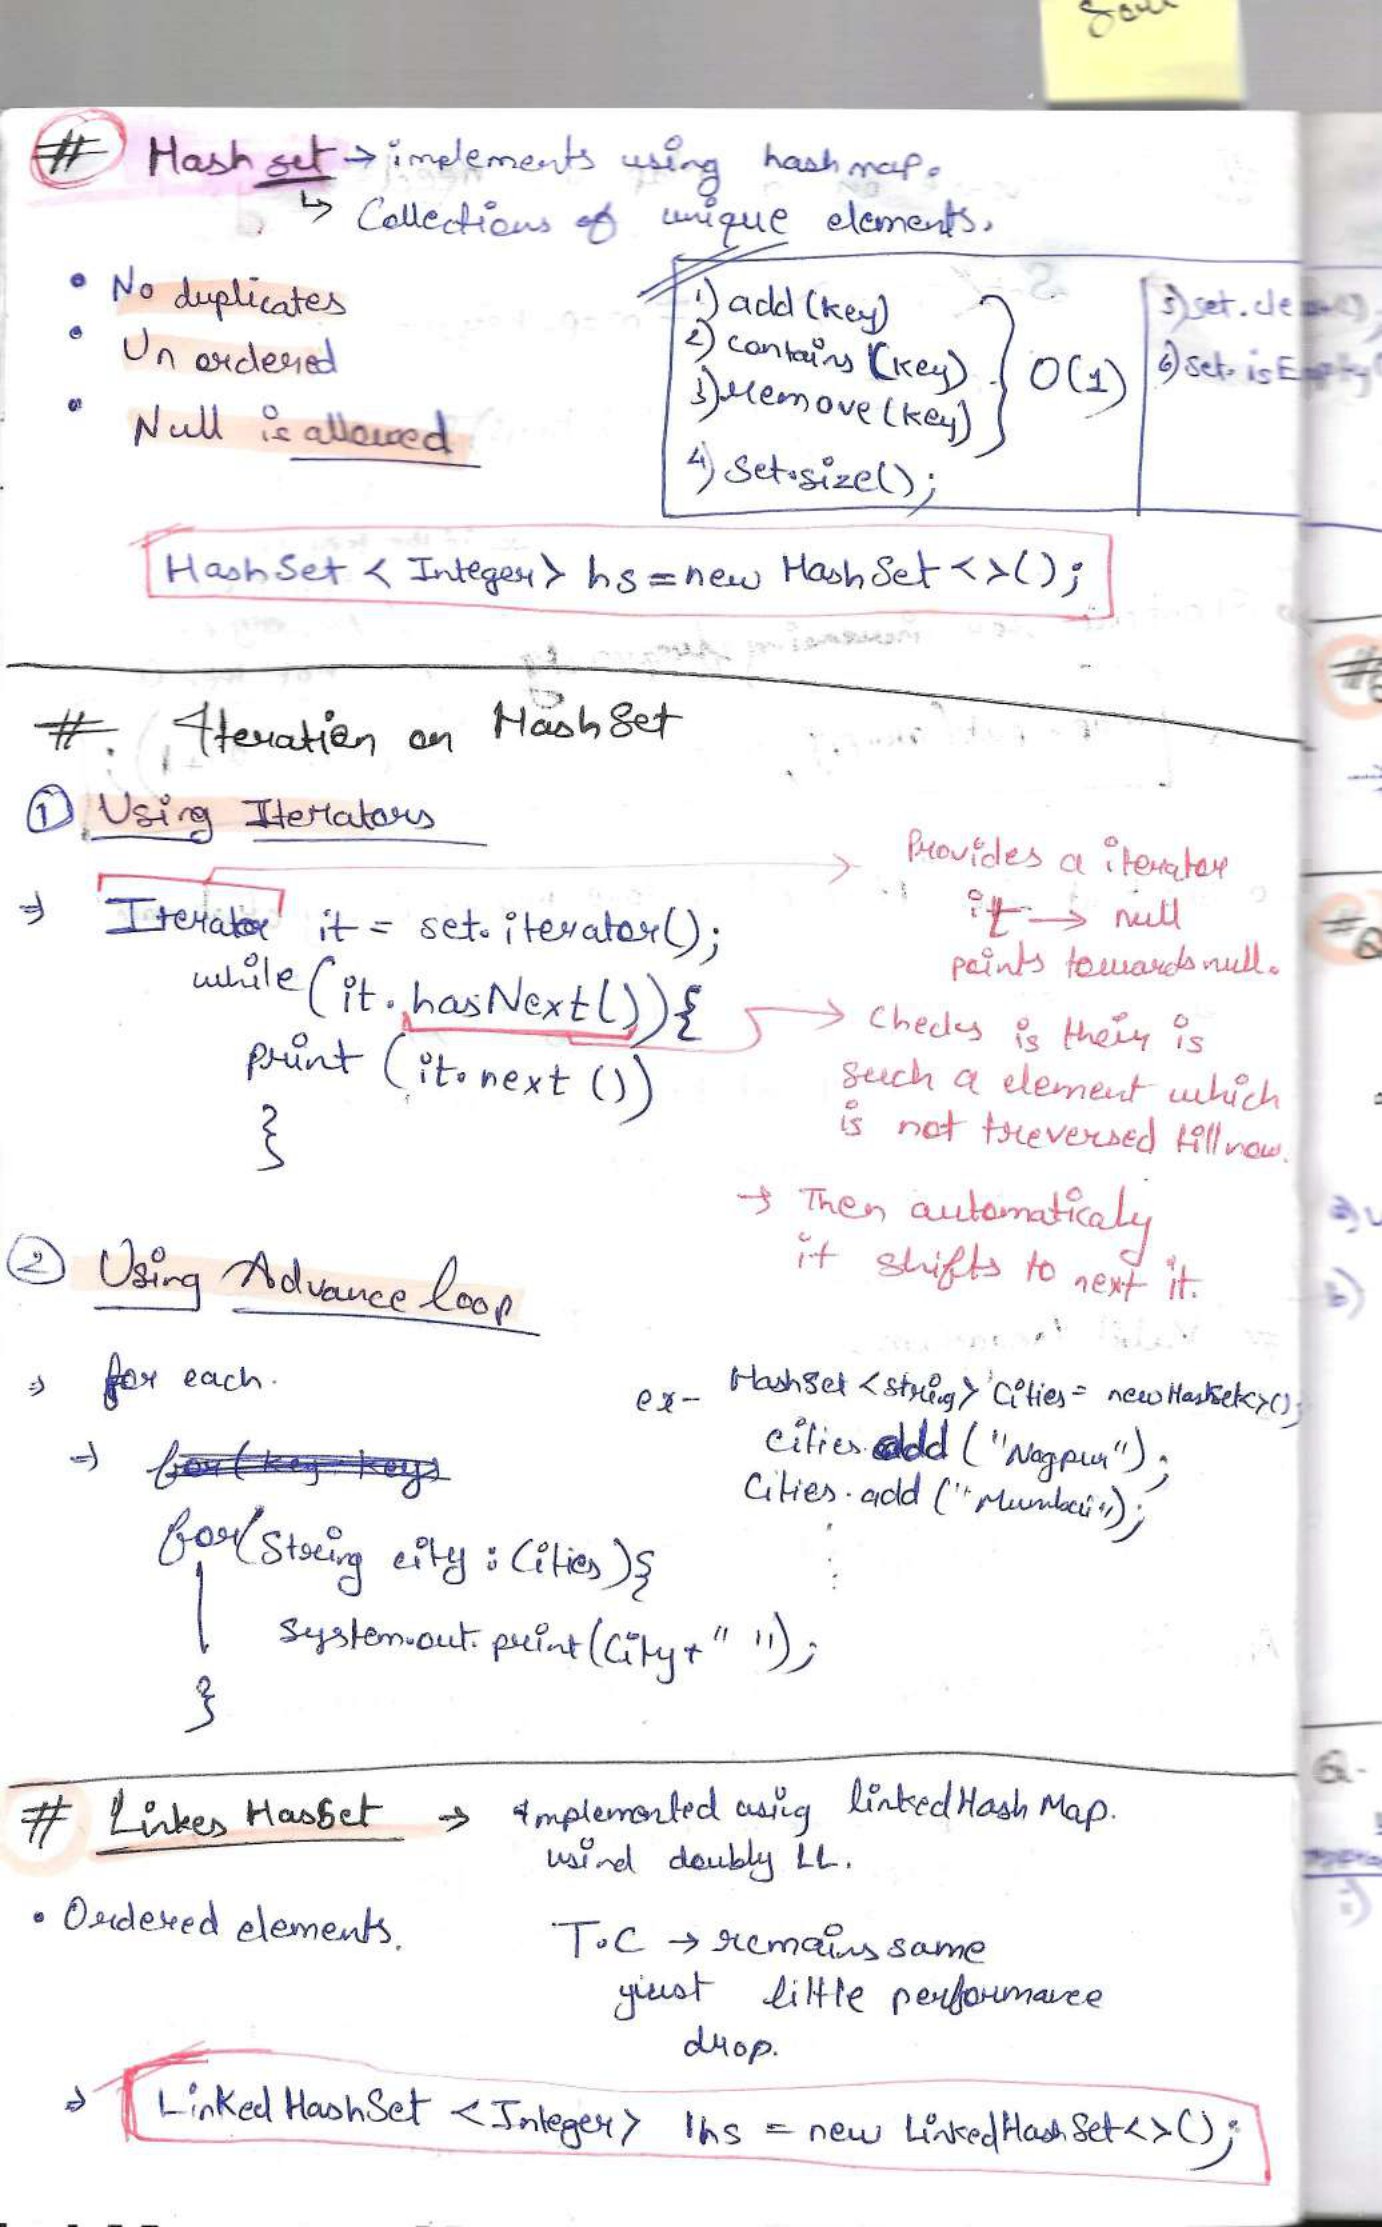 # Hash set → implements using hashmap.
↳ Collections of unique elements.
• No duplicates
• Un ordered
• Null is allowed
1) add(key)
2) contains (key)
3) remove(key)
} O(1)
4) Set.size();
5) set.clear();
6) set.isEmpty(
HashSet < Integer> hs = new HashSet <>();
#. Iteration on HashSet
① Using Iterators
⇒ Iterator it = set.iterator();
while (it.hasNext()){
print (it.next ())
}
→ Provides a iterator
it → null
points towards null.
→ Checks is their is
such a element which
is not treversed till now.
→ Then automaticaly
it shifts to next it.
② Using Advance loop
⇒ for each.
⇒ for(key: keys
for(String city : Cities){
System.out.print(City+" ");
}
ex- HashSet <string> Cities = new HasSet<>();
cities.add ("Nagpur");
Cities.add ("Mumbai");
# Linkes HasSet → Implemented using linkedHash Map.
usind doubly LL.
• Ordered elements.
T.C → remains same
yiust little performance
drop.
⇒ LinkedHashSet <Integer> lhs = new LinkedHashSet<>();